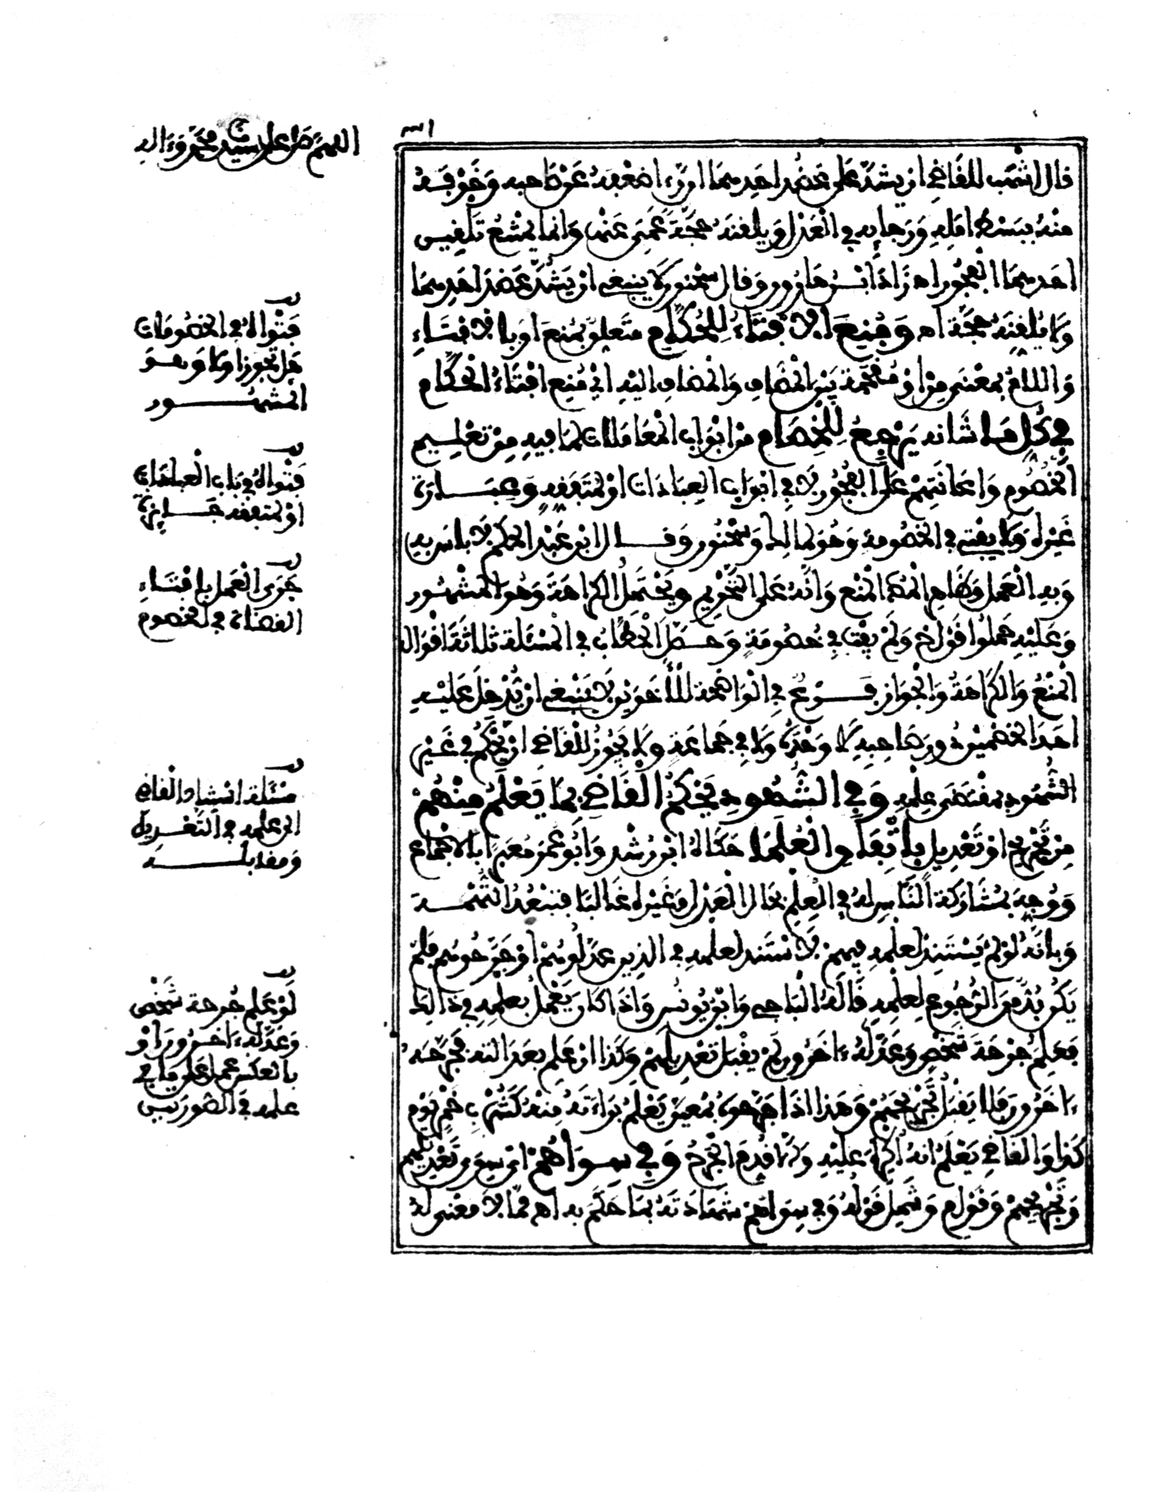 اللهم صل على سيدنا محمد وءاله
قال اشهب للقاضي ان يشد على عضد احدهما ان رءا ضعفه عن صاحبه وخوفه
منه ببسط امله ورجائه في العدل ويلقنه حجة عمي عنها وانما يمنع تلقين
احدهما الفجور اهـ زاد ابن هارون وقال سحنون لا ينبغي ان يشد عضد احدهما
ولا يلقنه حجة اهـ ومنع الافتاء للحكام متعلق بمنع او بالافتاء
واللام بمعنى من او مقحمة بين المضاف والمضاف اليه اي منع افتاء الحكام
في كل ما شانه يرجع للخصام من ابواب المعاملات لما فيه من تعليم
الخصوم واعانتهم على الفجور لا في ابواب العبادات او لمتفقه وعبارة
غيره ولا يفتي في الخصومة وهو لمالك وسحنون وقال ابن عبد الحكم لا باس به
وبه العمل وظاهر النظم المنع وانه على التحريم ويحتمل الكراهة وهو المشهور
وعليه حملوا قول خ ولم يفت في خصومة وحصل الحطاب في المسئلة ثلاثة اقوال
المنع والكراهة والجواز فرع في الواضحة للاخوين لا ينبغي ان يدخل عليه
احد الخصمين دون صاحبه لا وحده ولا في جماعة ولا يجوز للقاضي ان يحكم في غير
الشهود بمقتضى علمه وفي الشهود يحكم القاضي بما يعلم منهم
من تجريح او تعديل باتفاق العلما حكاه ابن رشد وابو عمر معبرا بالاجماع
ووجه بمشاركة الناس له في العلم بحال العدل وغيره غالبا فتبعد التهمة
وبانه لو لم يستند لعلمه فيهم لاستند لعلمه في الذين عدلوهم او جرحوهم فلم
يكن بد من الرجوع لعلمه قاله الباجي وابن يونس واذا كان يعمل بعلمه في ذلك
فعلم جرحة شخص وعدله ءاخرون لم يقبل تعديلهم وكذا ان علم عدالته فجرحه
ءاخرون فلا يقبل تجريحهم وهذا اذا جرحوه بمعين يعلم براءته منه كشرب خمر يوم
كذا والقاضي يعلم انه اكره عليه والا قدم الجرح وفي سواهم اي سوى تعديلهم
وتجريحهم وقول م وشمل قوله وفي سواهم شهادته بما حكم به اهـ مما لا معنى له
فتواه في الخصومات
هل تجوز او لا وهو
المشهور
فتواه في باب العبادات
او لمتفقه جايزة
جرى العمل بافتاء
القضاة في الخصوم
مسئلة استناد القاضي
الى علمه في التعديل
ومقابله
لو علم جرحة شخص
وعدله ءاخرون او
بالعكس عمل على ما في
علمه في الصورتين